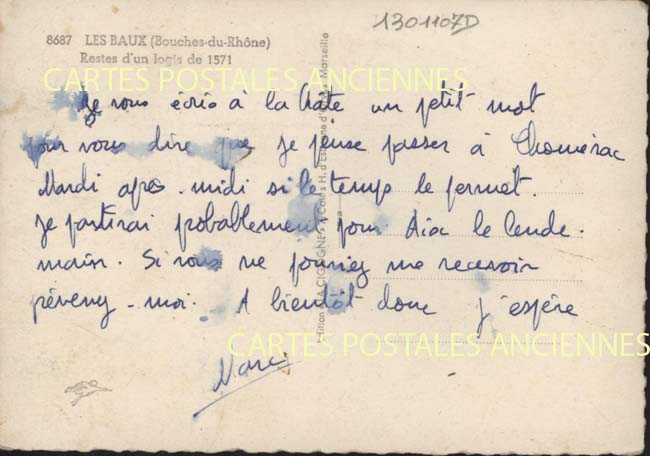 1301107D
8687 LES BAUX (Bouches-du-Rhône)
Restes d'un logis de 1571
CARTES POSTALES ANCIENNES
Je vous écris à la hâte un petit mot
pour vous dire que je pense passer à Chomérac
Mardi après-midi si le temps le permet.
Je partirai probablement pour Aix le lende-
main. Si vous ne pouviez me recevoir
prévenez-moi. A bientôt donc j'espère
CARTES POSTALES ANCIENNES
Marc
CIGOGNE
Marseille